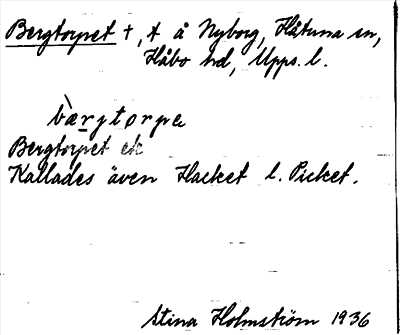 Bergtorpet †, t å Nyborg, Håtuna sn,
Håbo hd, Upps. l.
bærgtorpe
Bergtorpet
Kallades även Hacket l. Picket.
Stina Holmström 1936